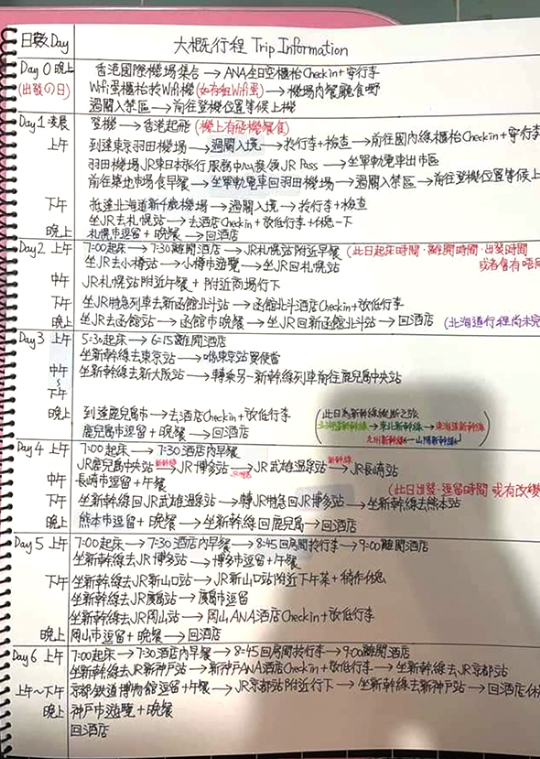 日數Day 大概行程 Trip Information
Day 0 晚上 香港國際機場集合→ANA坐日空櫃枱Checkin+寄行李
(出發の日) Wifi蛋櫃枱於Wifi機(如有租Wifi蛋)→機場內餐廳食嘢
過關入禁區→前往登機位置等候上機
Day 1 凌晨 登機→香港起飛(機上有飛機餐食)
上午 到達東京羽田機場→過關入境→拎行李+檢查→前往國內線櫃枱Checkin+寄行李
羽田機場JR東日本旅行服務中心換領JR Pass→坐單軌電車出市區
前往築地市場食早餐→坐單軌電車回羽田機場→過關入禁區→前往登機位置等候上
下午 抵達北海道新千歲機場→過關入境→拎行李+檢查
坐JR去札幌站→去酒店Checkin+放低行李+休息一下
晚上 札幌市逗留+晚餐→回酒店
Day2 上午 7:00起床→7:30離開酒店→JR札幌站附近早餐(此日起床時間、離開時間、出發時間
坐JR去小樽站→小樽市遊覽→坐JR回札幌站 或者會有唔同
中午 JR札幌站附近午餐+附近商場行下
下午 坐JR特急列車去新函館北斗站→函館北斗酒店Checkin+放低行李
晚上 坐JR去函館站→函館市晚餐→坐JR回新函館北斗站→回酒店(北海道行程尚未完
Day3 上午 5:30起床→6:15離開酒店
坐新幹線去東京站→喺東京站買便當
中午 坐新幹線去新大阪站→轉乘另一新幹線列車前往鹿兒島中央站
~
下午
晚上 到達鹿兒島市→去酒店Checkin+放低行李 (此日為新幹線縱斷之旅
鹿兒島市逗留+晚餐→回酒店 北海道新幹線→東北新幹線→東海道新幹線
九州新幹線←山陽新幹線)
Day 4 上午 7:00起床→7:30酒店內早餐
JR鹿兒島中央站→新幹線 JR博多站→JR特急 JR武雄溫泉站→新幹線 JR長崎站
中午 長崎市逗留+午餐 (此日出發、逗留時間 或有改變
下午 坐新幹線回JR武雄溫泉站→轉JR特急回JR博多站→坐新幹線去熊本站
晚上 熊本市逗留+晚餐→坐新幹線回鹿兒島→回酒店
Day 5 上午 7:00起床→7:30酒店內早餐→8:45回房間拎行李→9:00離開酒店
坐新幹線去JR博多站→博多市逗留+午餐
下午 坐新幹線去JR新山口站→JR新山口站附近下午茶+稍作休息
坐新幹線去JR廣島站→廣島市逗留
坐新幹線去JR岡山站→岡山ANA酒店Checkin+放低行李
晚上 岡山市逗留+晚餐→回酒店
Day 6 上午 7:00起床→7:30酒店內早餐→8:45回房間拎行李→9:00離開酒店
坐新幹線去JR新神戶站→新神戶ANA酒店Checkin+放低行李→坐新幹線去JR京都站
上午~下午 京都鉄道博物館逗留+午餐→JR京都站附近行下→坐新幹線去新神戶站→回酒店休
晚上 神戶市遊覽+晚餐
回酒店